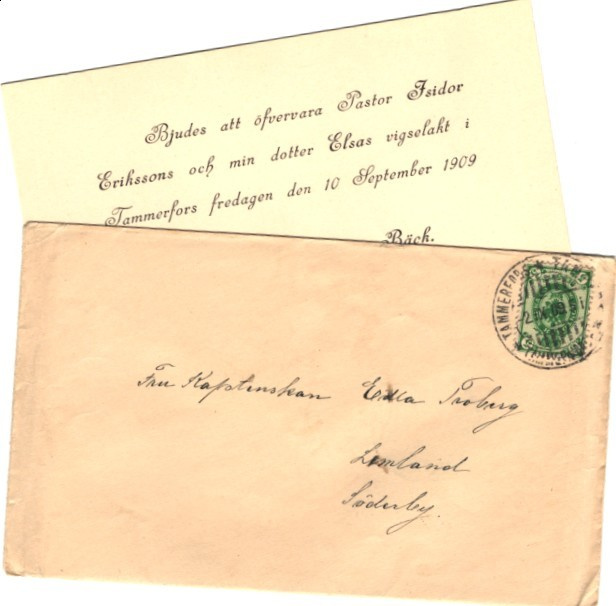 Bjudes att öfvervara Pastor Isidor
Erikssons och min dotter Elsas vigselakt i
Tammerfors fredagen den 10 September 1909
Bäck.
TAMMERFORS
Fru Kaptenskan Edla Troberg
Lemland
Söderby.